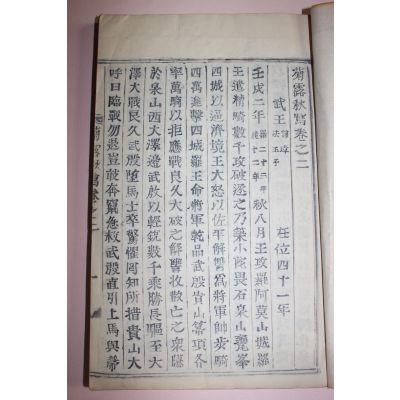 菊露秋寫卷之二
武王 諱璋 法王子 在位四十一年
壬戌二年 秋八月王攻羅阿莫山城羅
王遣精騎數千攻破逐之乃築小陀畏石泉山甕岑
四城以逼濟境王大怒以佐平解讐爲將軍帥步騎
四萬進擊四城羅王命將軍乾品武殷貴山箒項各
率萬騎以拒應戰良久大破之解讐收散亡之衆陣
於泉山西大澤邊武殷以輕銳數千乘勝長驅至大
澤大戰良久武殷墮馬士卒驚懼罔知所措貴山大
呼曰臨戰勿退豈敢奔竄急救武殷直引上馬與箒
菊露秋寫卷之二 一